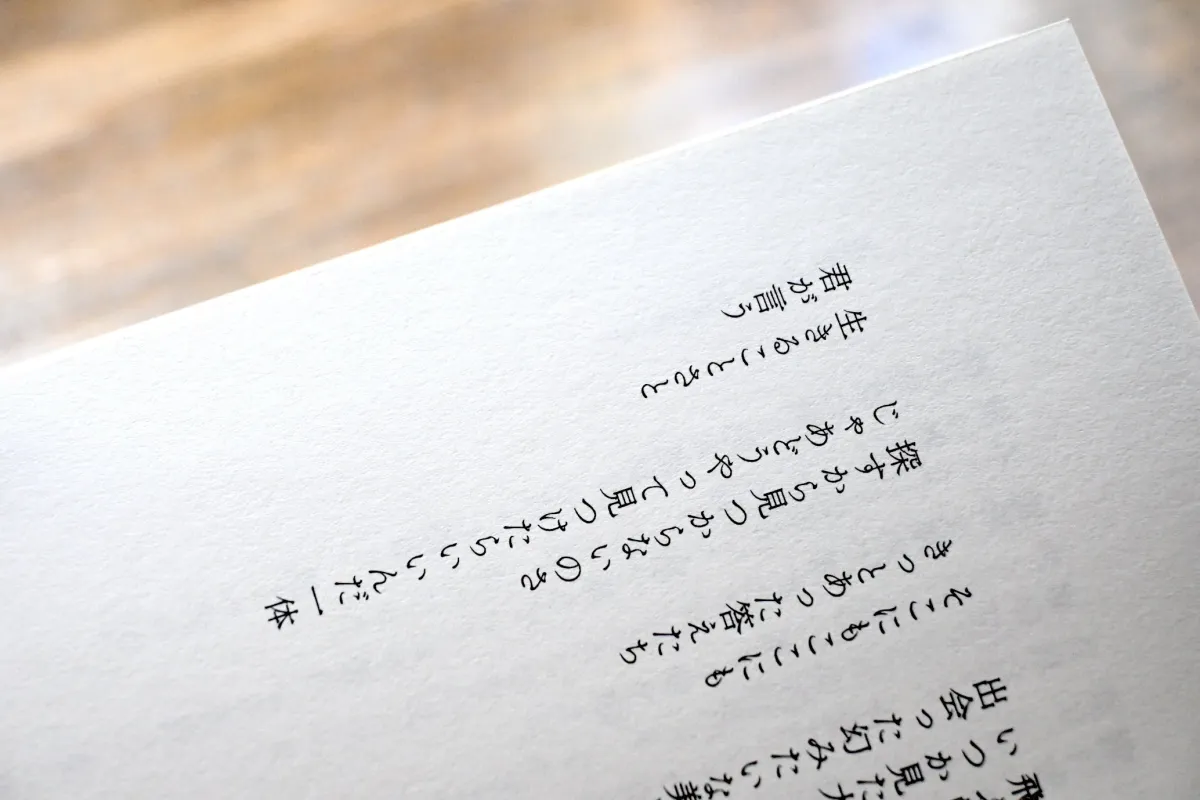 飛
いつか見た
出会った幻みたいな美
そこにもここにも
きっとあった答えたち
探すから見つからないのさ
じゃあどうやって見つけたらいいんだ一体
生きることさと
君が言う